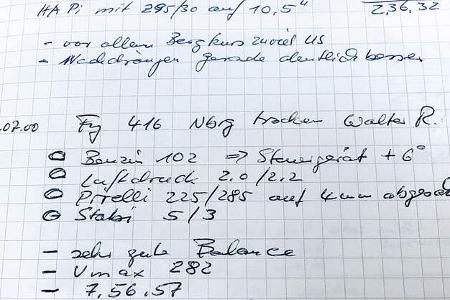 HA Pi mit 295/30 auf 10,5" 2.36.32
- vor allem Bergkurs zuviel US
- Nachdrängen gerade deutlich besser
.07.00 Fzg 416 Nbrg trocken Walter R.
Benzin 102 ⇒ Steuergerät + 6°
Luftdruck 2.0/2.2
Pirelli 225/285 auf 4mm
Stabi 5/3
- sehr gute Balance
- Vmax 282
- 7,56,57